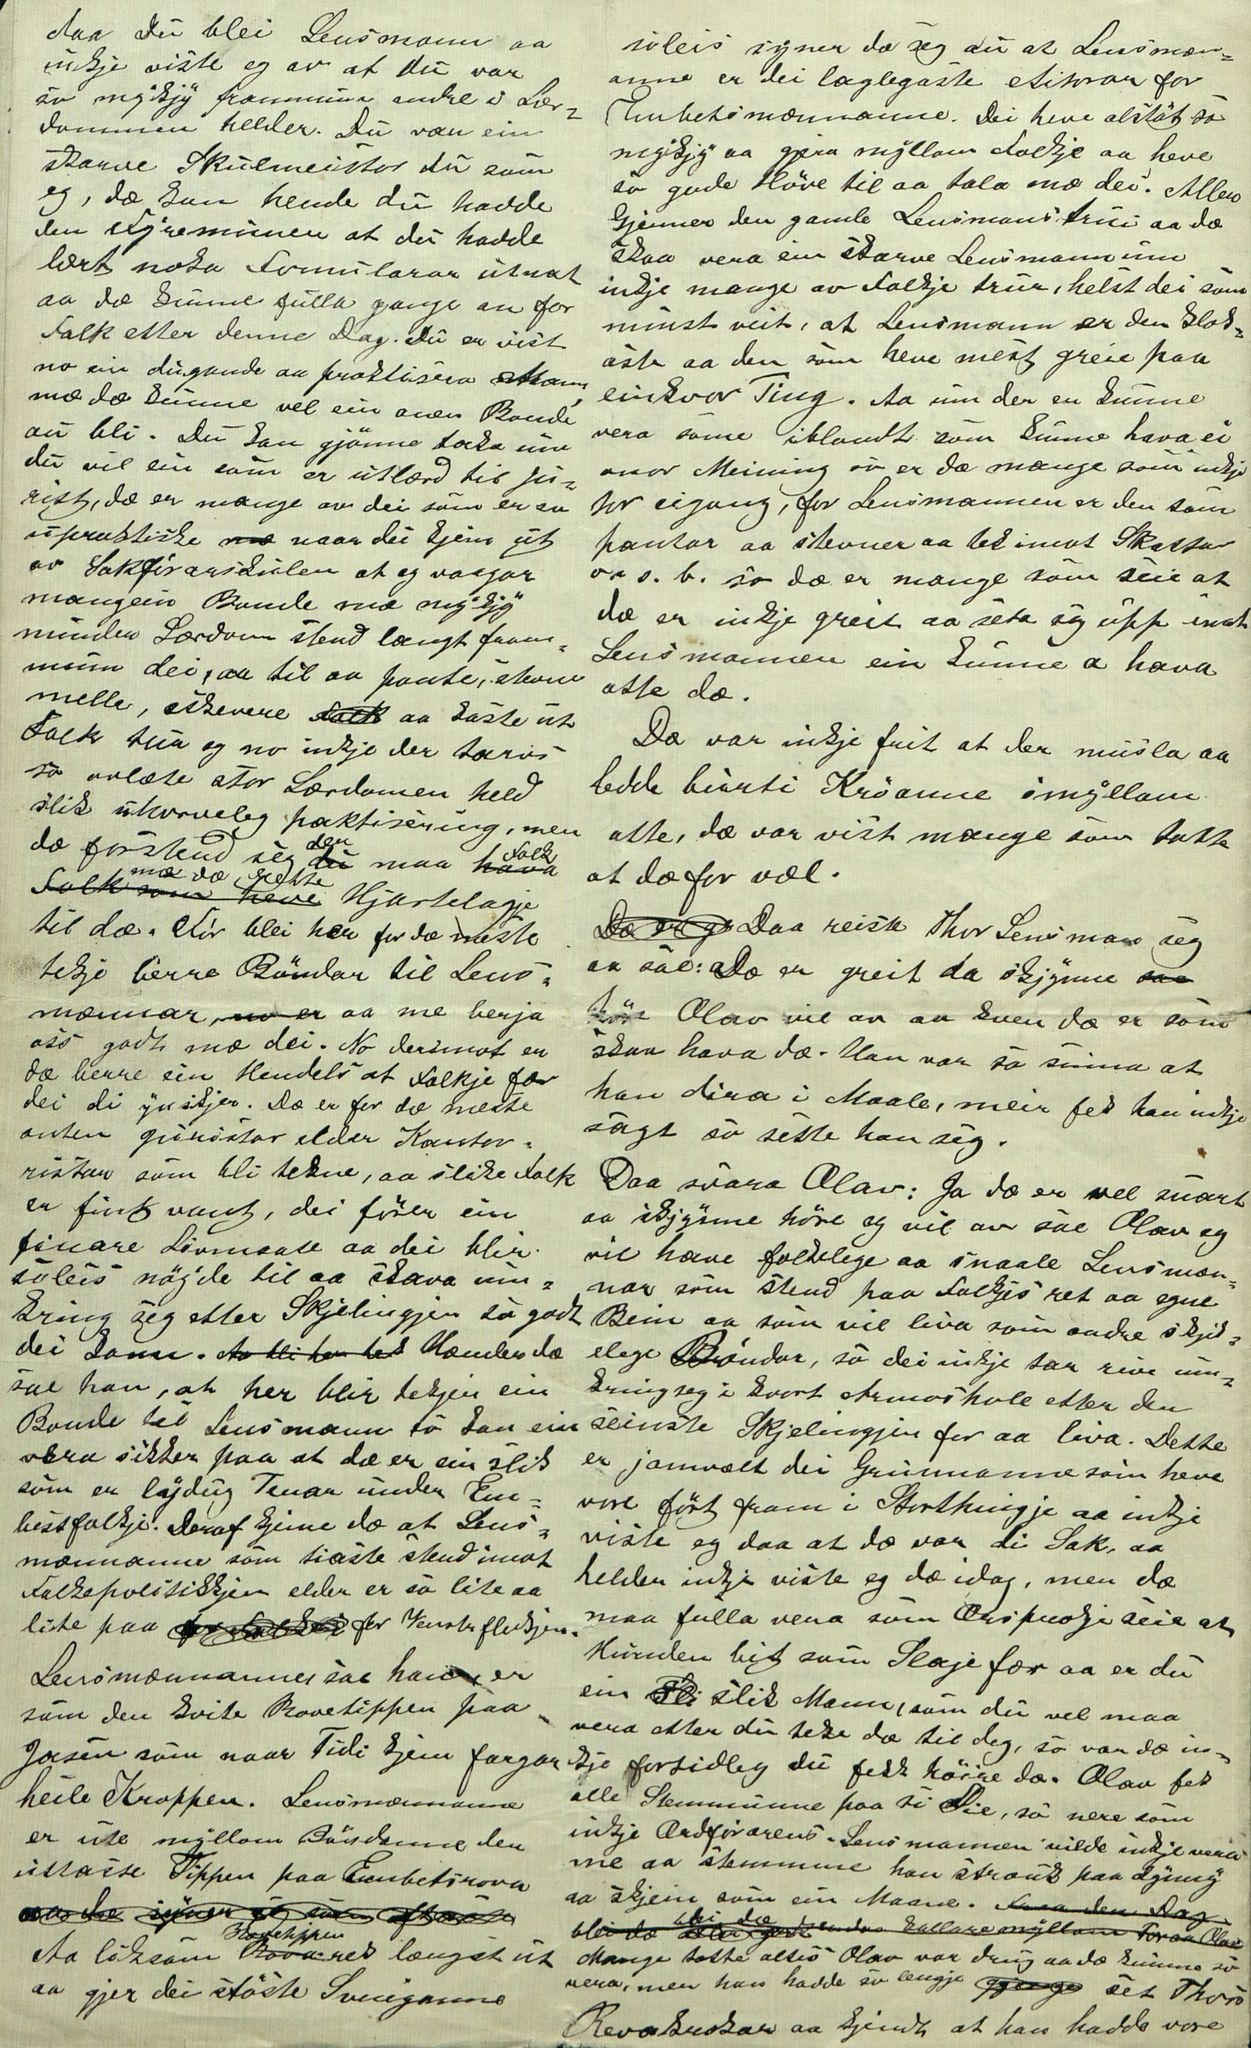 daa Du blei Lensmann aa
inkje viste eg av at Du var
so mykjy frammum andre i Lær-
dommen helder. Du var ein
skarve Skulmeistar du som
eg, dæ kan hende du hadde
den Fyremunen at du hadde
lært noka Formularar utnat
aa dæ kunne fulla gange an for
Folk etter denne Dag. Du er vist
no ein dugande aa praktisera
mæ dæ kunne vel ein anen Bonde
au bli. Du kan gjönne taka um
du vil ein som er utlærd til Ju-
rist, dæ er mange av dei som er so
upraktiske naar dei kjem ut
av Sakförarskulen at eg vaagar
mangein Bonde mæ mykjy
mindre Lærdom stend langt fram-
mum dei, aa til aa pante, stevne
melle, skrevere Folk aa kaste ut
Folk trur eg no inkje der tarvs
so ovlæte stor Lærdomen held
slik uhorveleg paktisering, men
dæ förstend seg du den maa hava Folk
Folk som heve mæ dæ rette Hjartelagje
til dæ. För blei her for dæ meste
tekje berre Böndar til Lens-
mænnar, no er aa me berja
oss godt mæ dei. No derimot er
dæ berre ein Hendels at Folkje fær
dei di ynskjer. Dæ er for dæ meste
anten jurister elder Kontor-
ristar som bli tekne, aa slike Folk
er fint vant, dei förer ein
finare Livmaate aa dei blir
soleis nögde til aa skava um-
kring seg etter Skjelingjen so godt
dei kann. Hænder dæ
sae han, at her blir tekjen ein
Bonde til Lensmann so kan ein
vera sikker paa at dæ er ein slik
som er lydug Tenar under Em-
betsfolkje. Deraf kjeme dæ at Lens-
mænnanne som tiaste stend imot
Folkepolitikkjen elder er so lite aa
lite paa for Venstreflokjen.
Lensmænnannes sae han er
som den kvite Rovetippen paa
Jasen som naar Tidi kjem fargar
heile Kroppen. Lensmænnanne
er ute myllom Böndanne den
ittaste Tippen paa Embetsrova
Aa liksom Rovetippen rek længst ut
aa gjer dei störste Svinganne
soleis syner dæ seg au at Lensmæn-
anne er dei laglegaste for
Embetsmænnanne. Dei heve altit so
mykjy aa gjera myllom Folkje aa heve
so gode Höve til aa tala mæ dei. Alle
kjenner den gamle Lensmans trui aa dæ
skaa vera ein skarve Lensmann um
inkje mange av Folkje trur, helst dei som
minst veit, at Lensmann er den klok-
aste aa den som heve mest greie paa
einkvor Ting. Aa um der en kunne
vera some iblandt som kunne hava ei
onor Meining so er dæ mange som inkje
tor eigong, for Lensmannen er den som
pantar aa stevner aa tek imot Skattar
o. s. b. so dæ er mange som seie at
dæ er inkje greit aa seta seg upp imot
Lensmannen ein kunne a hava
atte dæ.
Dæ var inkje frit at der musla aa
ledde burti Kröanne imyllom
atte, dæ var vist mange som totte
at dæ for væl.
Dæ er g Daa reiste Thor Lensman seg
aa sae: Dæ er greit da skjynne
höre Olav vil av aa kven dæ er som
skaa hava dæ. Han var so sinna at
han dirra i Maale, meir fek han inkje
sagt so sette han seg.
Daa svara Olav: Ja dæ er vel snart
aa skjynne höre eg vil av sae Olav eg
vil hæve folkelege aa snaale Lensmæn-
nar som stend paa Folkjes ret aa egne
Bein aa som vil liva som andre skjik-
elege Böndar, so dei inkje tar rive um-
kring seg i kvort Armoshole etter den
seinste Skjelingjen for aa liva. Dette
er jamvælt dei Grunnanne som heve
vore fört fram i Storthingje aa inkje
viste eg daa at dæ var di Sak, aa
helder inkje viste eg dæ idag, men dæ
maa fulla vera som Orspraakje seie at
Hunden bit som Slaje fær aa er du
ein slik Mann, som du vel maa
vera etter du teke dæ til deg, so var dæ in-
kje forsidleg du fekk höire dæ. Olav fek
alle Stemmunne paa si Sie, so nere som
inkje Ordförarens. Lensmannen vilde inkje vera
me aa stemmme han strauk paa Dyung
aa skjein som ein Maane. Fraa den Dag
blei dæ kallare myllom Tor aa Olav
Mange totte altso Olav var drug aa dæ kunne so
vera, men han hadde so lengje set Thors
Revakrokar aa kjendt at han hadde vore